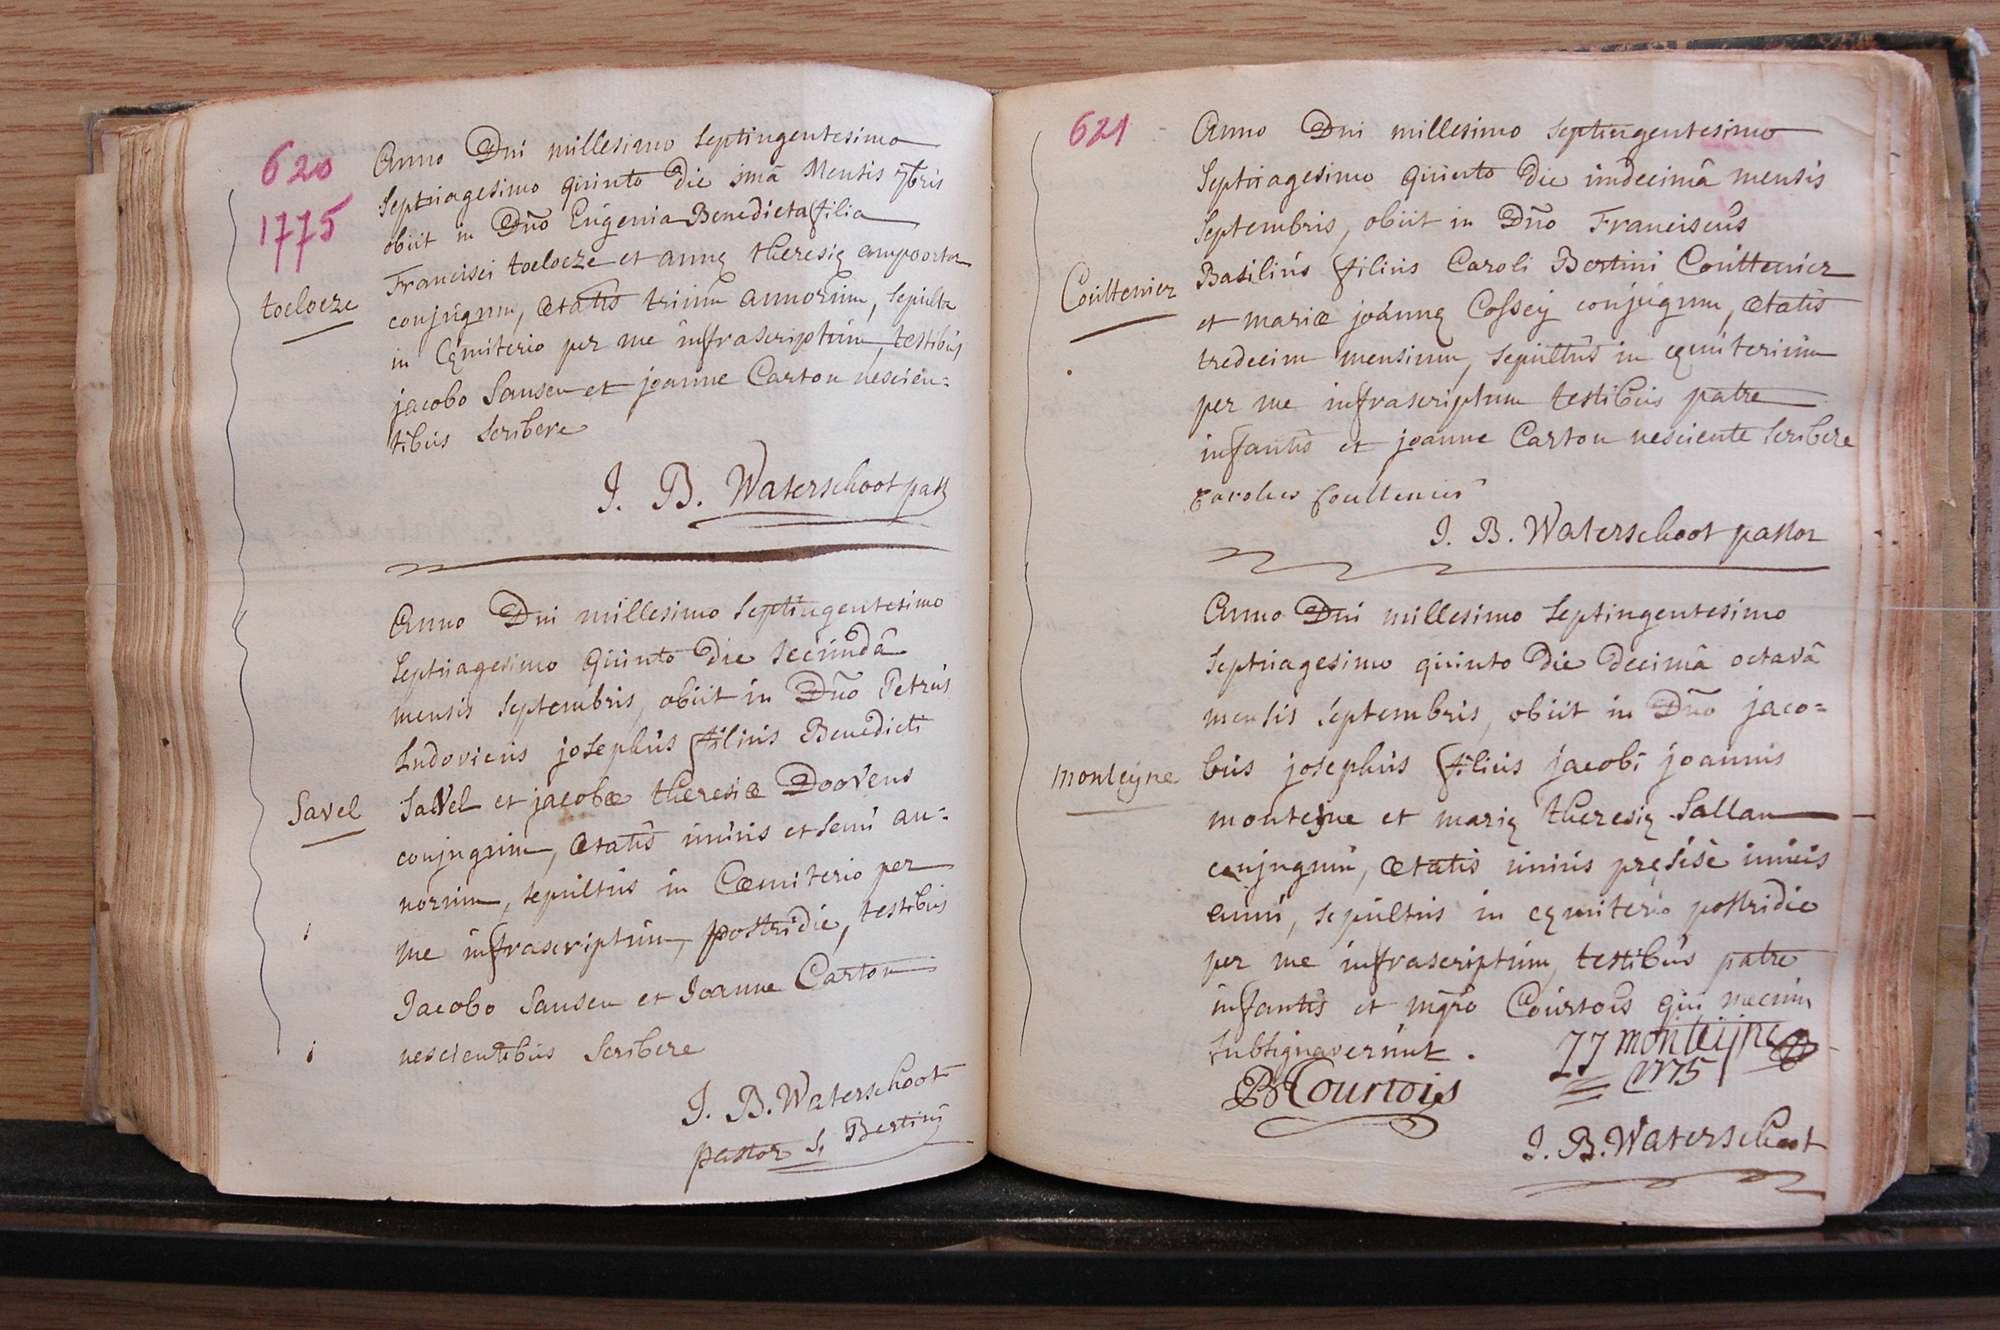 620
1775
Anno Dni millesimo septingentesimo
septuagesimo quinto die 1mâ Mensis 7bris
obiit in Dño Eugenia Benedicta filia
toeloeze
Francisci toeloeze et annę theresię ampoorter
conjugum, ætatis trium annorum, sepulta
in Cęmiterio per me infrascriptum, testibus
jacobo Sansen et joanne Carton nescien=
tibus scribere
J. B. Waterschoot past
Anno Dni millesimo septingentesimo
septuagesimo quinto die secundâ
mensis septembris, obiit in Dño Petrus
Ludovicus josephus filius Benedicti
Savel
Savel et jacobæ theresiæ Doovens
conjugum, ætatis unius et semi an=
norum, sepultus in Cœmiterio per
me infrascriptum, postridie, testibus
Jacobo Sansen et Joanne Carton
nescientibus scribere
J. B. Waterschoot
pastor S. Bertini
621
Anno Dni millesimo septingentesimo
septuagesimo quinto die undecimâ mensis
septembris, obiit in Dño Franciscus
Couttenier
Basilius filius Caroli Bertini Couttenier
et mariæ joannę Cossey conjugum, ætatis
tredecim mensium, sepultus in cęmiterium
per me infrascriptum testibus patre
infantis et joanne Carton nesciente scribere
carolus couttenier
J. B. Waterschoot pastor
Anno Dni millesimo septingentesimo
septuagesimo quinto die decimâ octavâ
mensis septembris, obiit in Dño jaco=
monteyne
bus josephus filius jacobi joannis
monteyne et marię theresię Sallau
conjugum, ætatis unius pręsisè unius
anni, sepultus in cęmiterio postridie
per me infrascriptum, testibus patre
infantis et mgro Courtois qui mecum
subsignaverunt.
JJ monteijne
1775
PB Courtois
J. B. Waterschoot